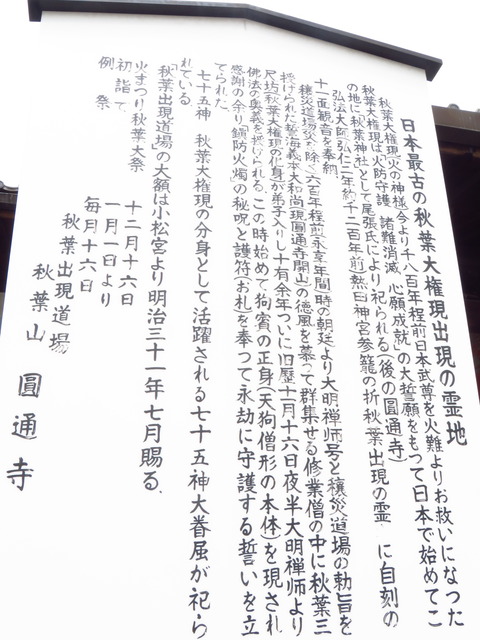 日本最古の秋葉大権現出現の霊地
秋葉大権現(火の神様)今より千八百年程前日本武尊を火難よりお救いになった
秋葉大権現は「火防守護 諸難消滅 心願成就」の大誓願をもって日本で始めてこ
の地に「秋葉神社」として尾張氏により祀られる(後の圓通寺)
弘法大師弘仁二年約千二百年前熱田神宮参籠の折秋葉出現の霊 に自刻の
十一面観音を奉納
穰災道場(災を除く)六百年程前永享年間時の朝廷より大明禅師号と穰災道場の勅旨を
授けられた誓海義本大和尚現圓通寺開山)の徳風を慕って群集せる修業僧の中に秋葉三
尺坊(秋葉大権現の化身が弟子入りし十有余年ついに旧歴十月十六日夜半大明禅師より
佛法の奥義を授けられる この時始めて狗賓の正身(天狗僧形の本体)を現され
感謝の余り鎮防火燭の秘呪と護符(お札)を奉って永劫に守護する誓いを立
てられた
七十五神 秋葉大権現の分身として活躍される七十五神大眷属が祀ら
れている
「秋葉出現道場」の大額は小松宮より明治三十一年七月賜る.
火まつり秋葉大祭 十二月十六日
初詣で 一月一日より
例祭 毎月十六日
秋葉出現道場
秋葉山 圓通寺